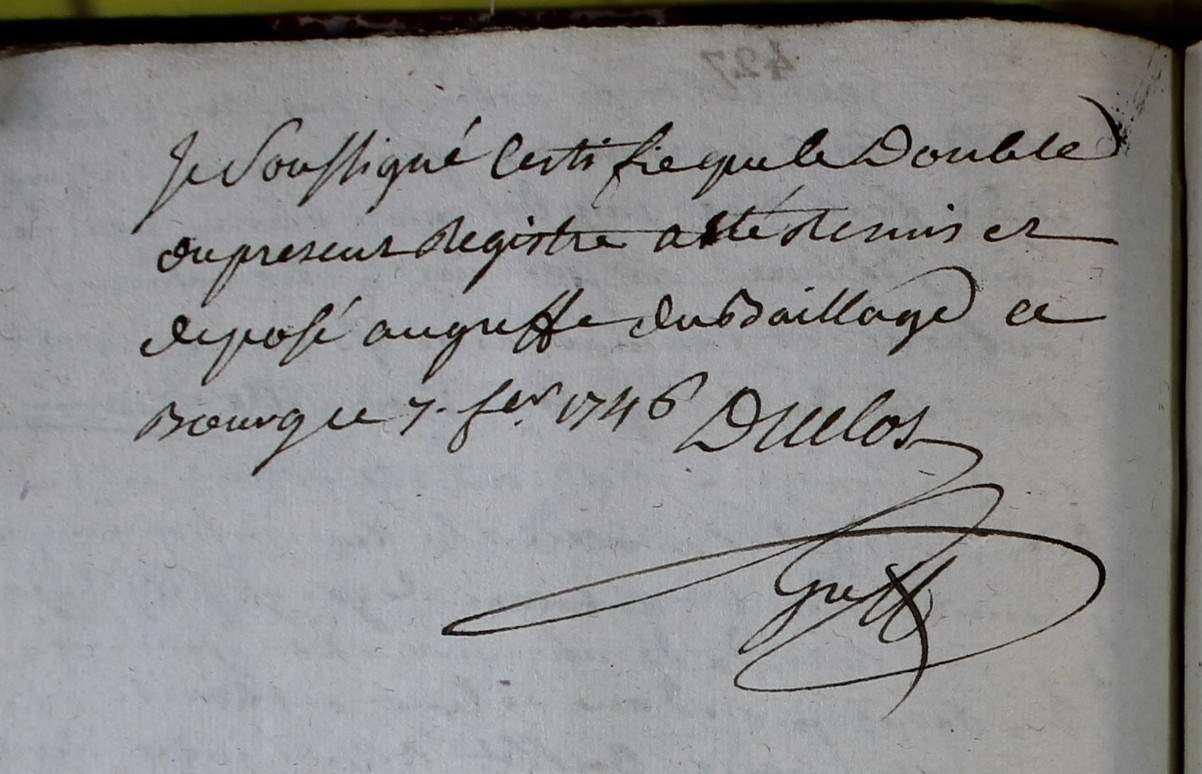 Je Soussigné Certifie que le Double
du present Registre a esté Remis et
deposé au greffe du Baillage a
Bourg ce 7. fer. 1746 Duclos
Greff